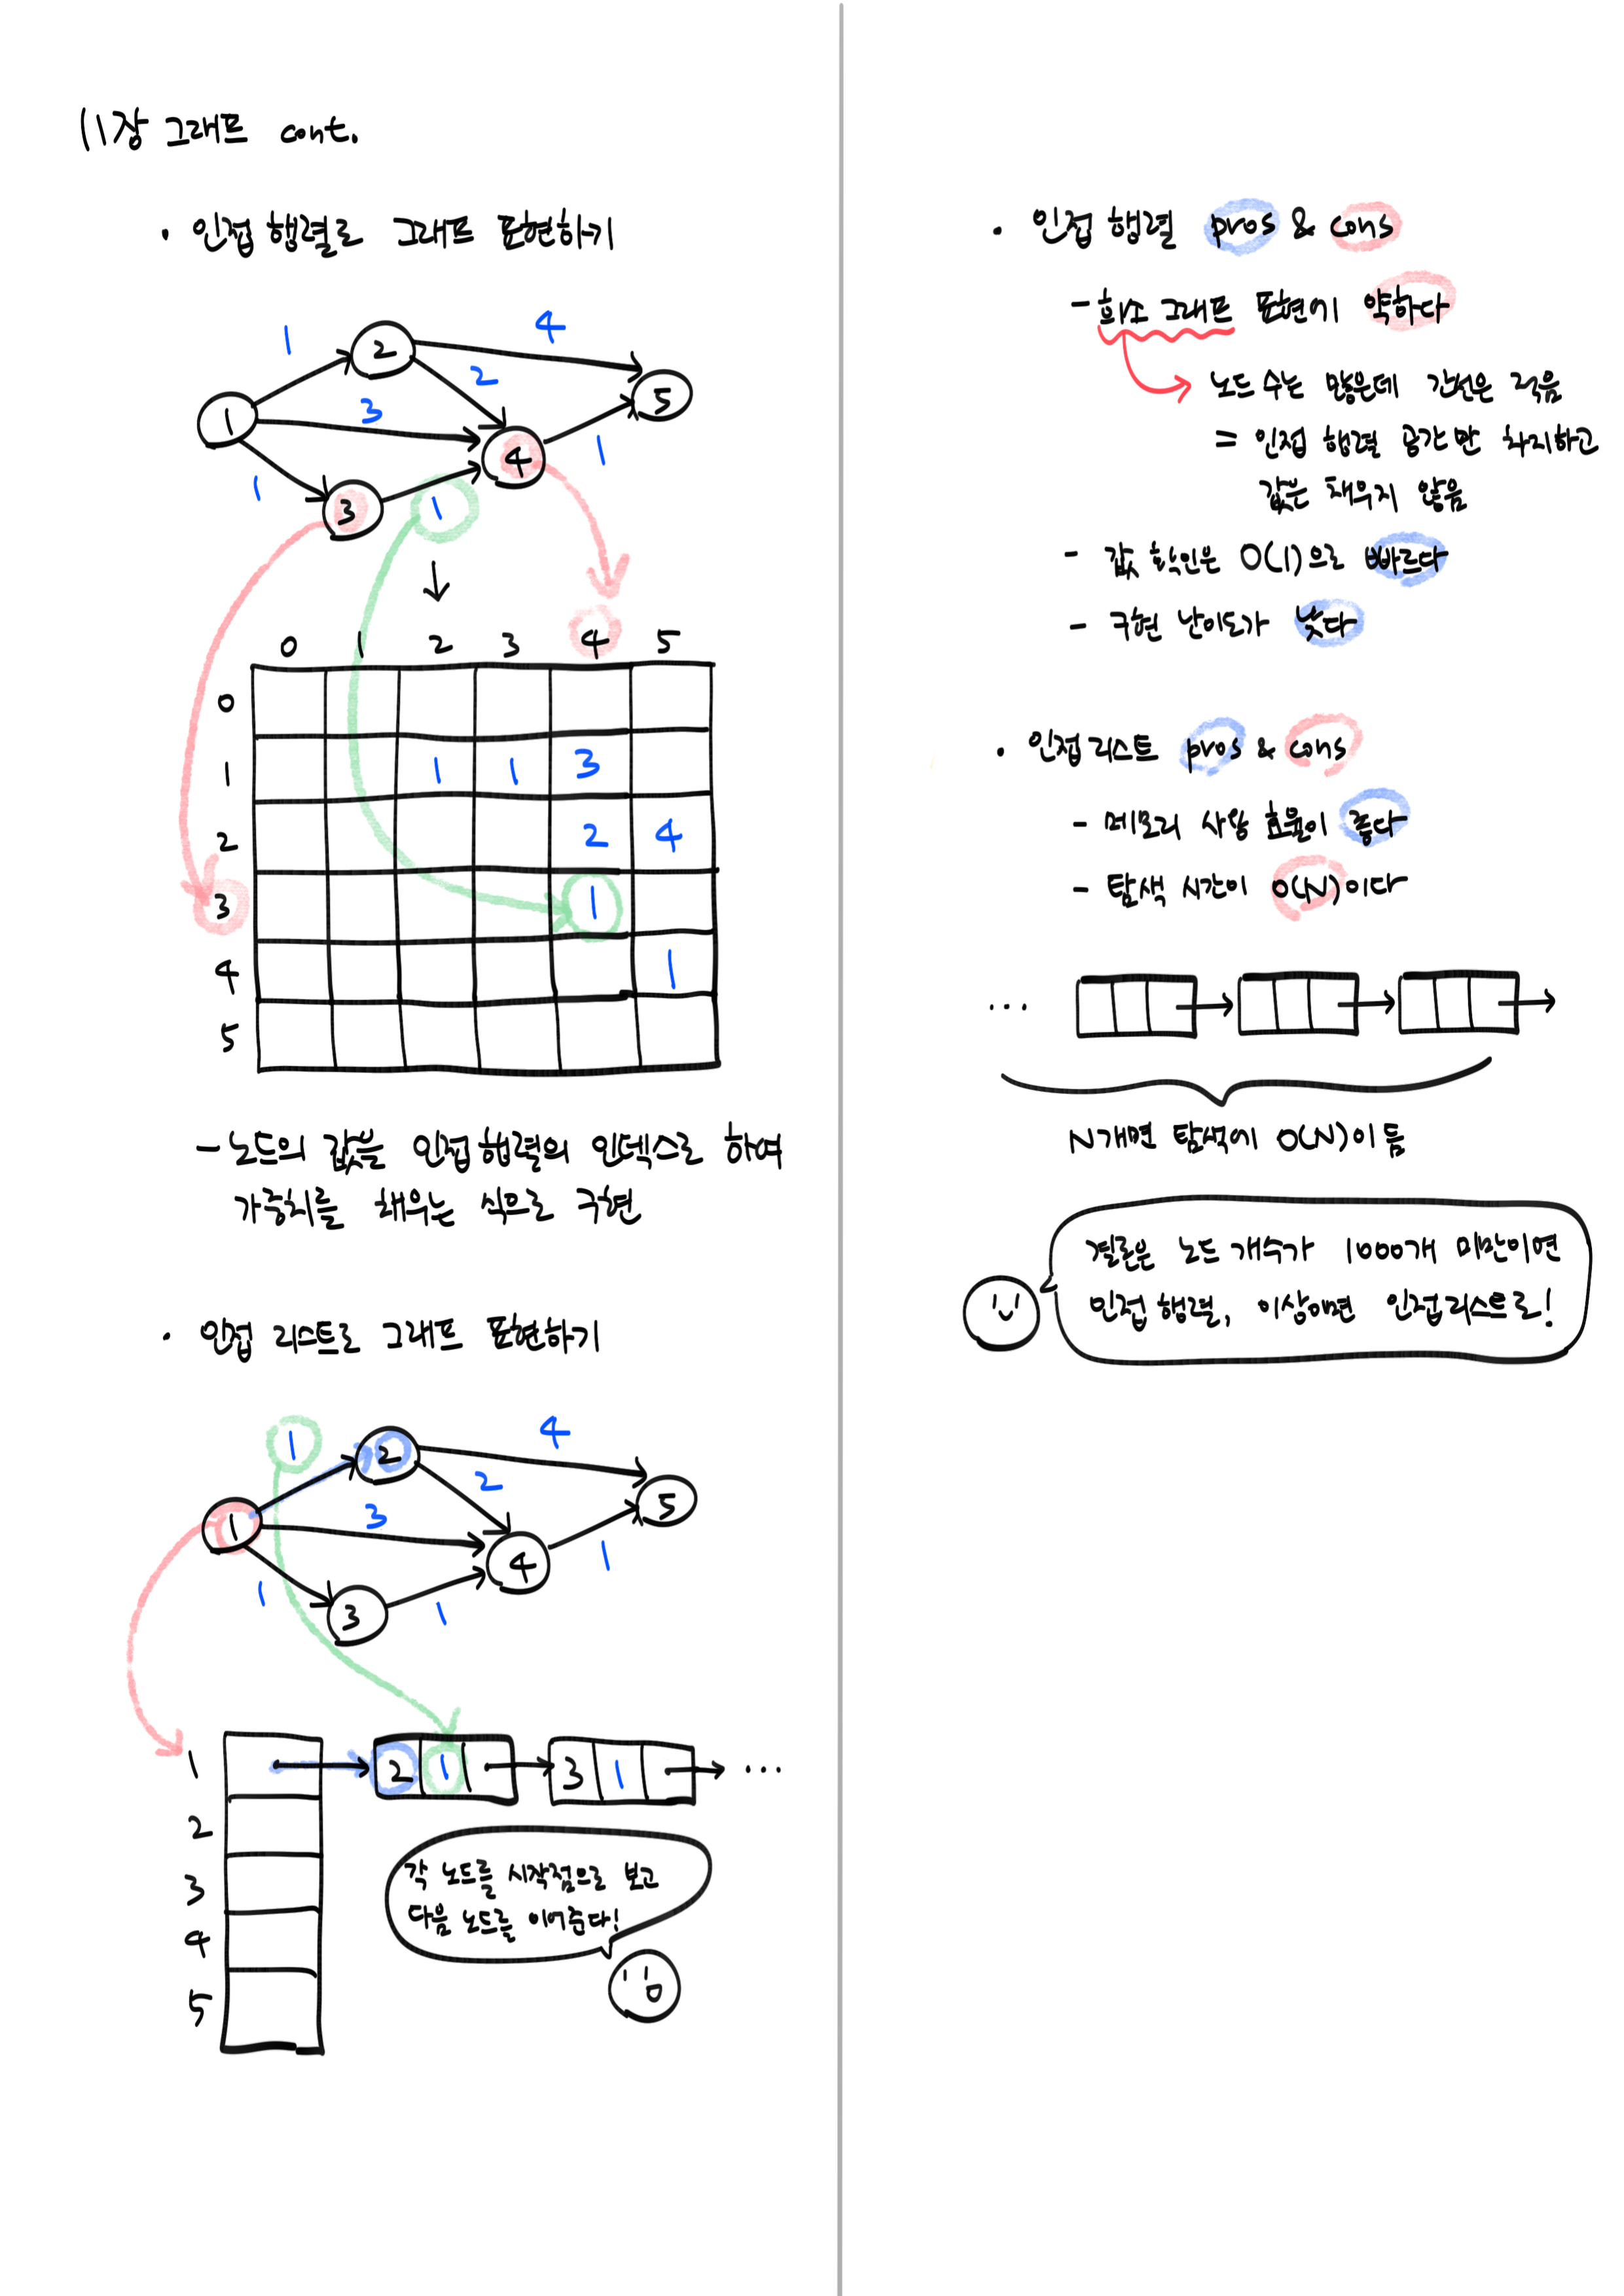 11장 그래프 cont.
· 인접 행렬로 그래프 표현하기
1 4
2
2
5
3
1
4
1
1
3
1
↓
0 1 2 3 4 5
0
1 1 1 3
2 2 4
3 1
4 1
5
- 노드의 값을 인접 행렬의 인덱스로 하여
가중치를 채우는 식으로 구현
· 인접 리스트로 그래프 표현하기
1 4
2
2
5
3
1
4
1
1
3
1
1 2 1 3 1 ...
2
3
4
5
각 노드를 시작점으로 보고
다음 노드를 이어준다!
· 인접 행렬 pros & cons
- 희소 그래프 표현에 약하다
노드 수는 많은데 간선은 적음
= 인접 행렬 공간만 차지하고
값은 채우지 않음
- 값 확인은 O(1)으로 빠르다
- 구현 난이도가 낮다
· 인접 리스트 pros & cons
- 메모리 사용 효율이 좋다
- 탐색 시간이 O(N)이다
...
N개면 탐색에 O(N)이 듬
결론은 노드 개수가 1000개 미만이면
인접 행렬, 이상이면 인접 리스트로!